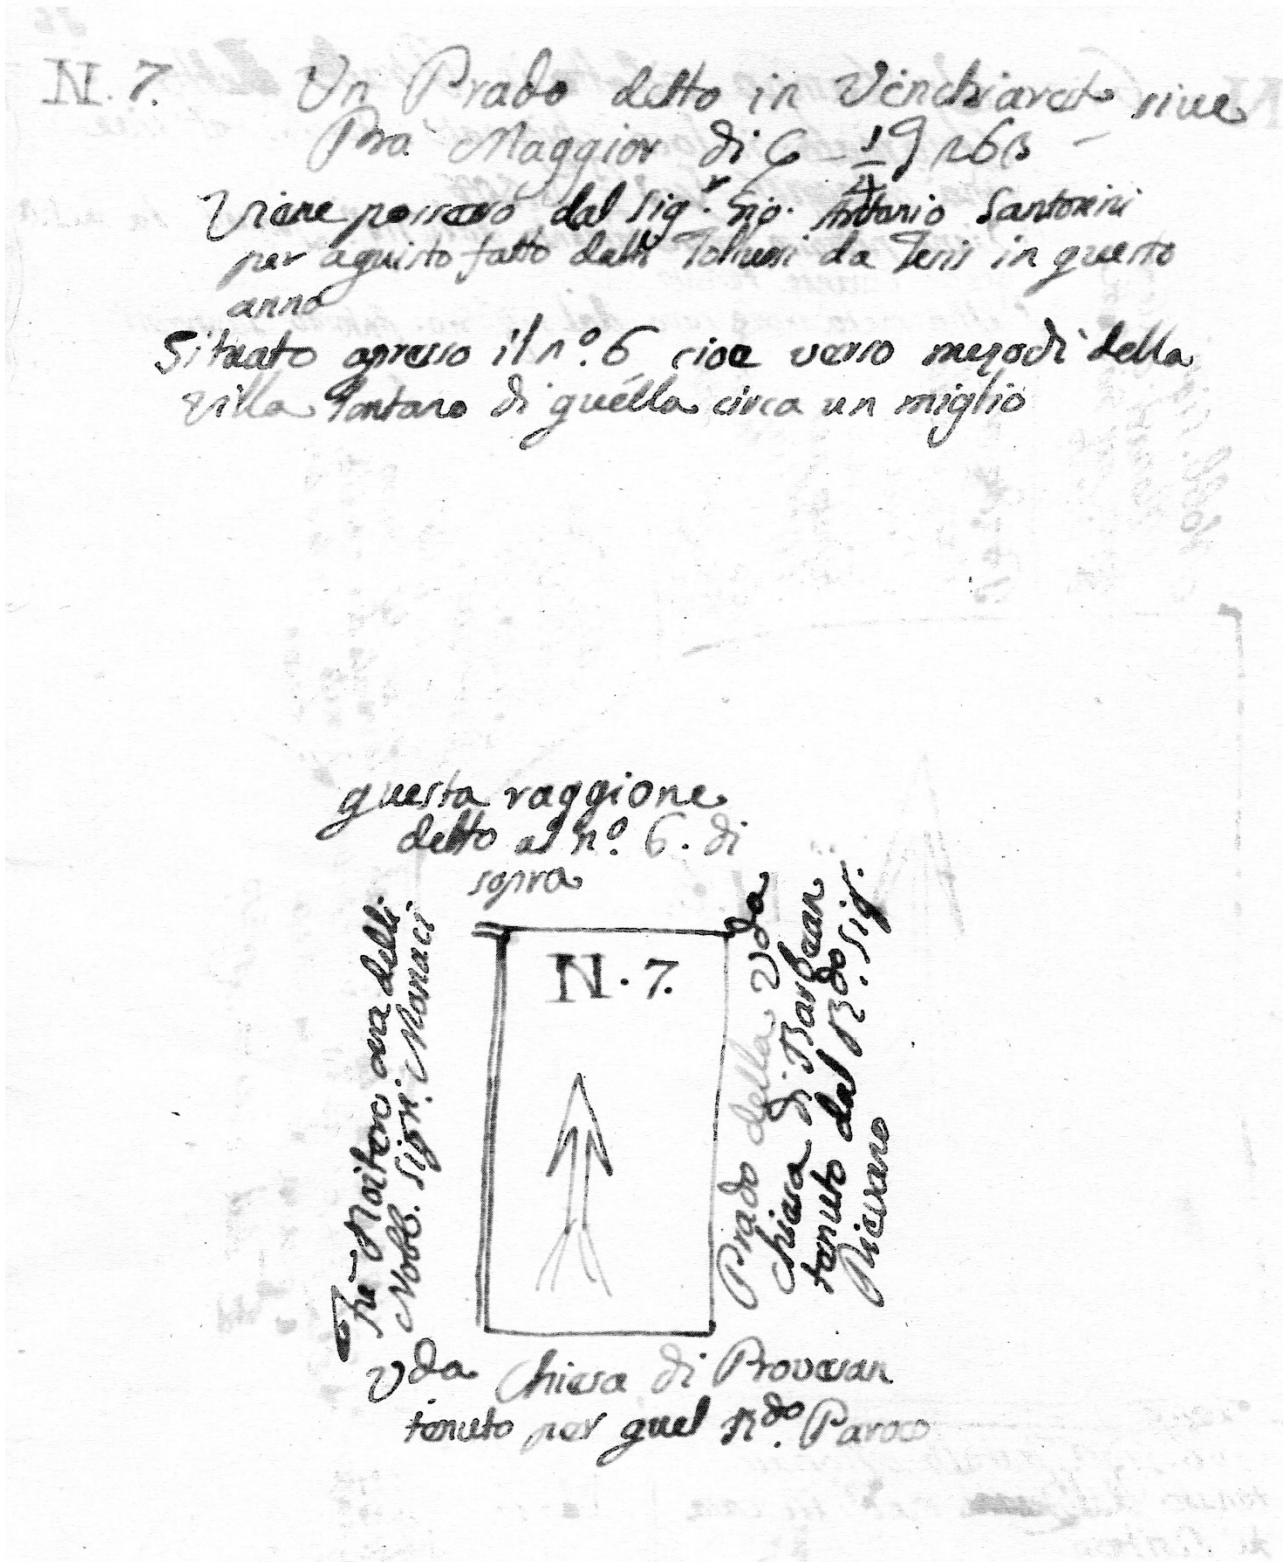 N. 7. Un Prado detto in Vinchiaret sive
Pra Maggior di C
Viene possesso dal Sig.r Gio. Antonio Santorini
per aquisto fatto dalli da in questo
anno
Situato apresso il n.º 6 cioe verso mezodì della
villa lontano di quella circa un miglio
questa raggione
detto al nº. 6. di
sopra
N. 7.
ora delli
Nobb. Sign. Monaci
Prado della Vda
chiesa di Barbean
tenuto dal Rdo. Sig.
Pievano
Vda Chiesa di Provesan
tenuto per quel Rdo. Paroco